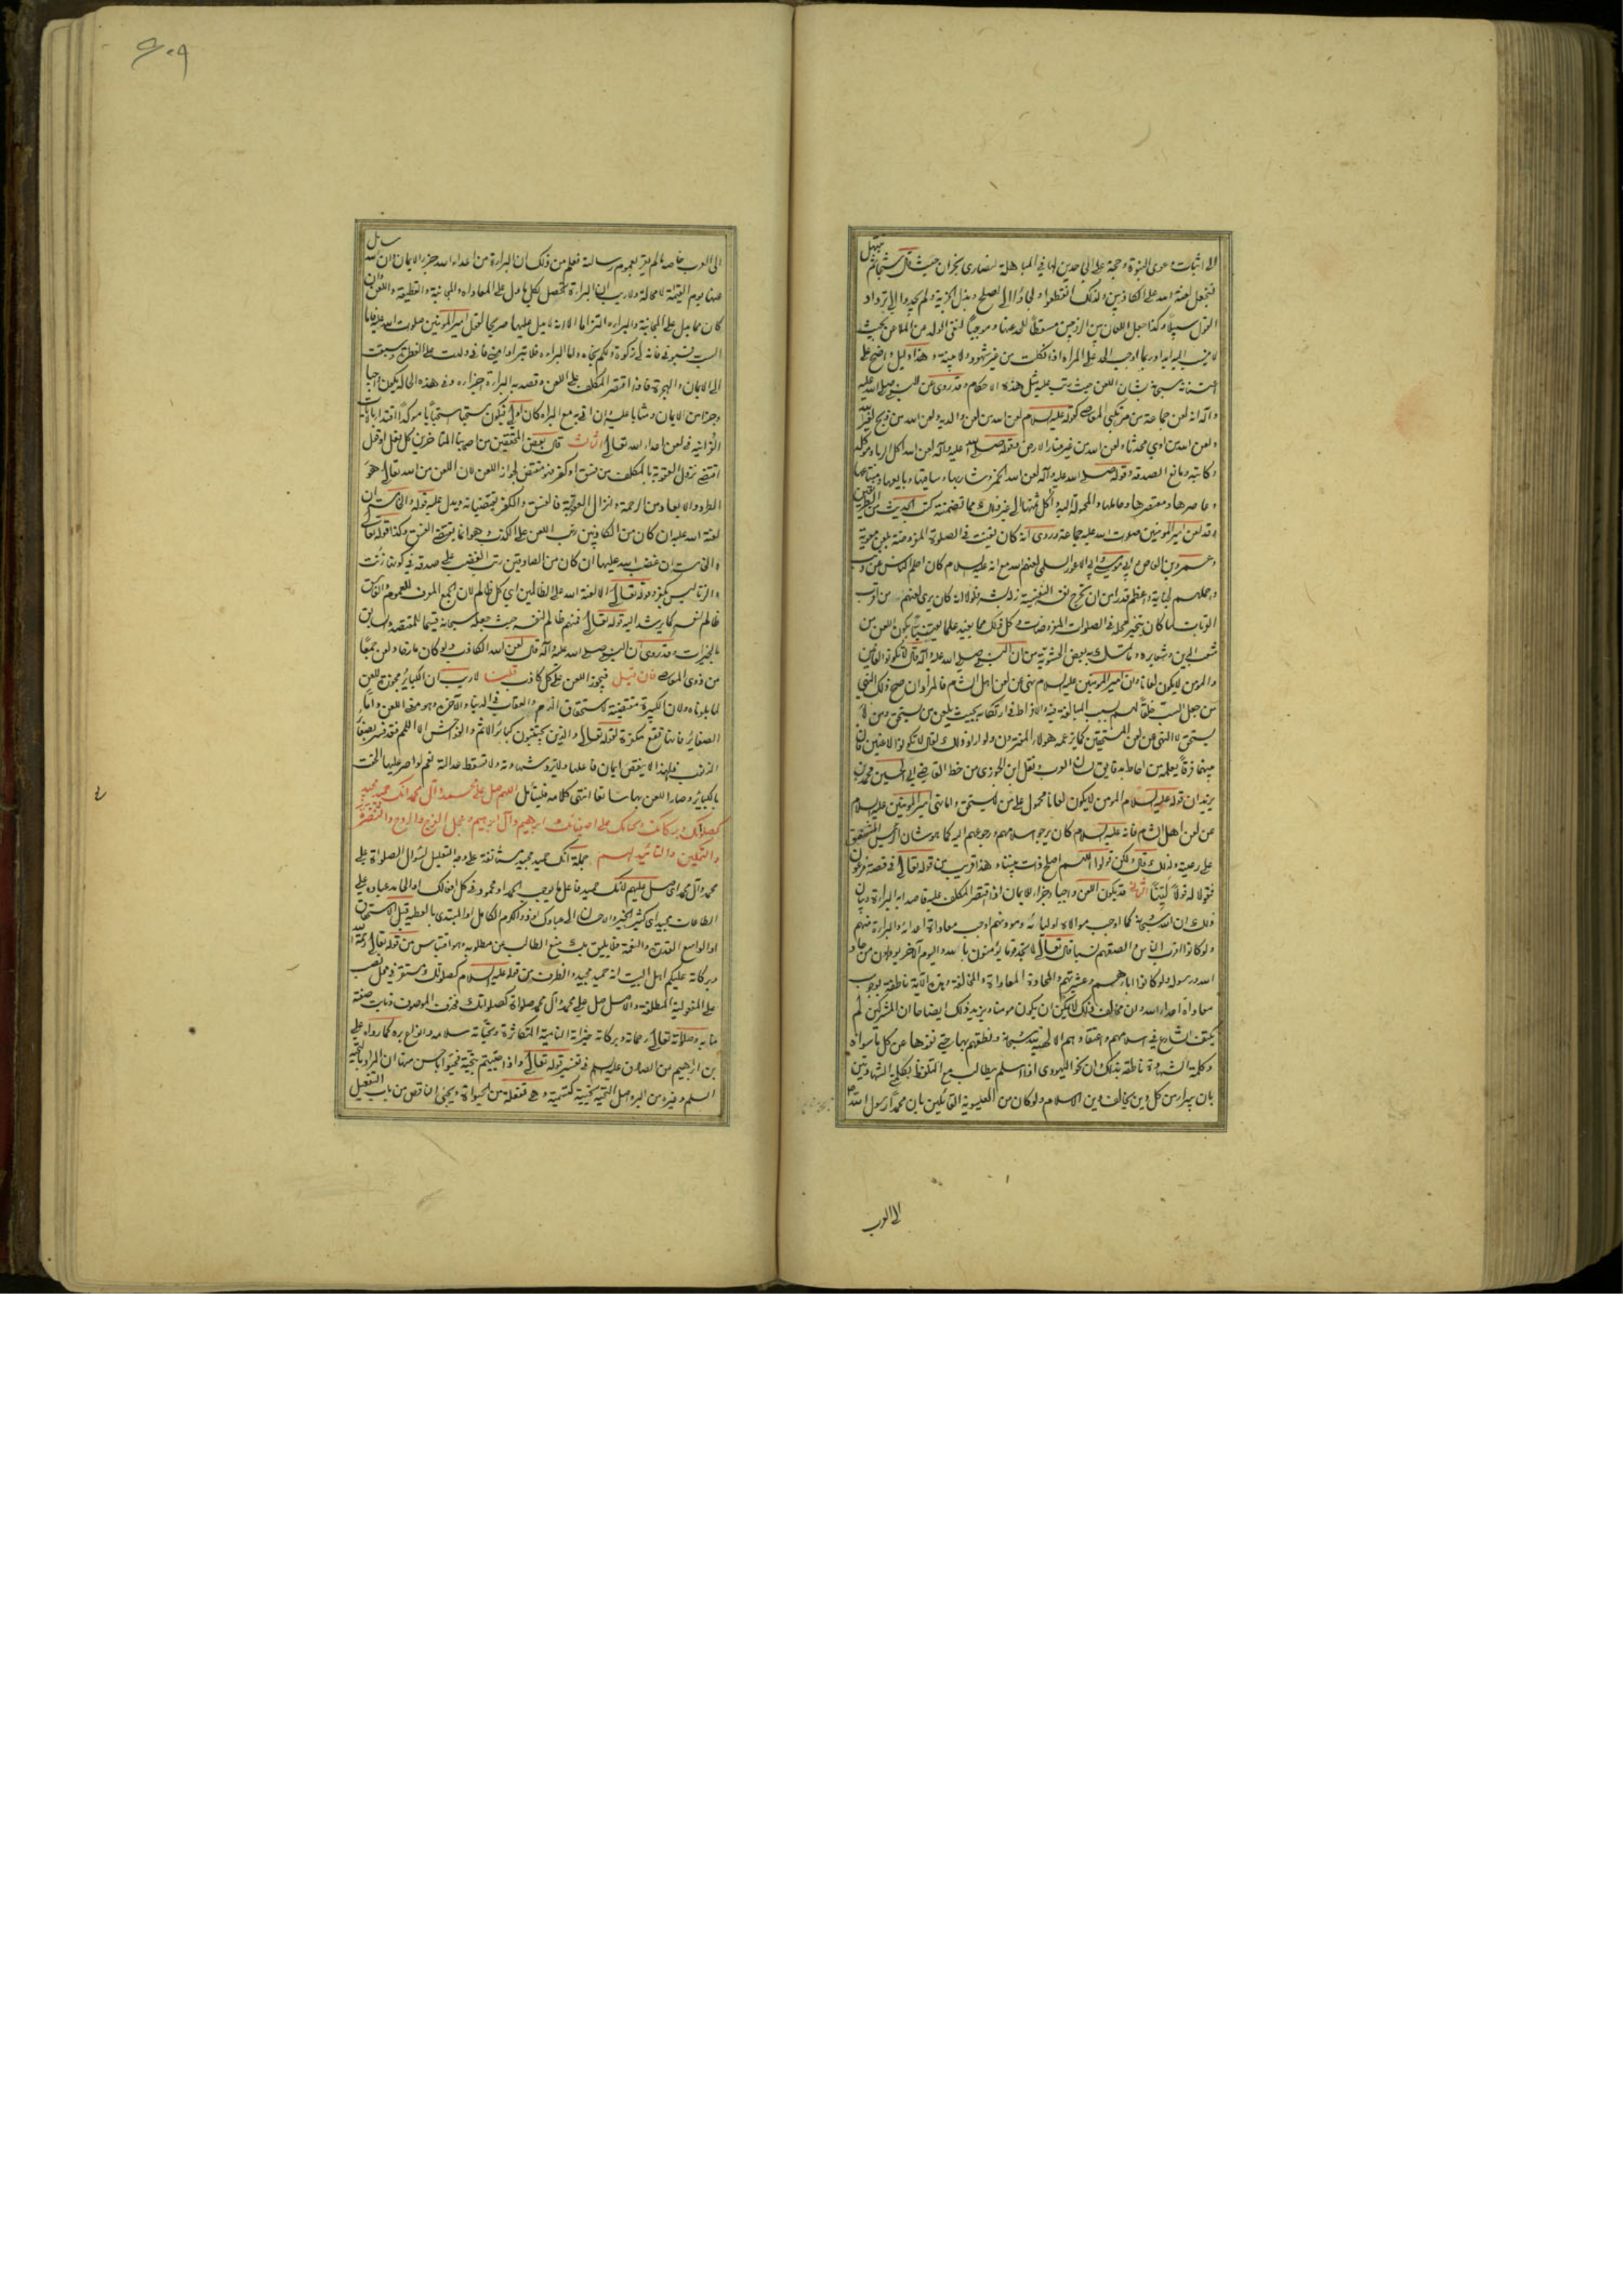 الى اثبات دعوى النبوة وحجة على الجاحدين لها في المباهلة لنصارى نجران حيث قال سبحانه ثم نبتهل
فنجعل لعنة الله على الكاذبين ولذلك انقطعوا ولجأوا الى الصلح وبذل الجزية ولم يجدوا الى ترداد
القول سبيلا وكذا جعل اللعان بين الزوجين مسقطا للحد عنها وموجبا لنفي الولد عن الملاعن بحيث
لا ينسب اليه ابدا وربما اوجب الحد على المراة اذا نكلت من غير شهود ولا بينة وهذا دليل واضح على
اعتنائه سبحانه بشان اللعن حيث رتب عليه مثل هذه الاحكام وقد روى عن النبي صلى الله عليه
وآله انه لعن جماعة من مرتكبي المعاصي كقوله عليه السلام لعن الله من لعن والديه ولعن الله من ذبح لغير الله
ولعن الله من اوى محدثا ولعن الله من غير منار الارض وقوله صلى الله عليه وآله لعن الله آكل الربا وموكله
وكاتبه ومانع الصدقة وقوله صلى الله عليه وآله لعن الله الخمر وشاربها وساقيها وبايعها ومبتاعها
وعاصرها ومعتصرها وحاملها والمحمولة اليه وآكل ثمنها الى غير ذلك مما تضمنته كتب الحديث من الطريقين
وقد لعن امير المؤمنين صلوت الله عليه جماعة وروى انه كان يقنت في الصلوة المفروضة بلعن معوية
وعمرو بن العاص وابي موسى وابي الاعور السلمي لعنهم الله مع انه عليه السلام كان احلم الناس عن ذنب
واجملهم جناية واعظم قدرا من ان تخرج نفسه النفيسة زلة بشر فلولا انه كان يرى لعنهم من اقرب
القربات لما كان يتخير محله في الصلوات المفروضات وكل ذلك مما يفيد علما يقينيا بكون اللعن من
شعب الدين وشعايره وما تمسك به بعض الحشوية من ان النبي صلى الله عليه وآله قال لا تكونوا لعانين
والمؤمن لا يكون لعانا وان امير المؤمنين عليه السلام نهى عن لعن اهل الشام فالمراد ان صح ذلك النهي
عن جعل السب خلقا لهم بسبب المبالغة فيه والافراط في ارتكابه بحيث يلعن من يستحق ومن لا
يستحق لا النهي عن لعن المستحقين كما يزعمه هؤلاء المغترون ولو اراد ذلك لقال لا تكونوا لاعنين فان
بينهما فرقا يعلمه من احاط بدقايق لسان العرب ونقل ابن الجوزي من خط القاضي ابي الحسين محمد بن
يزيد ان قوله عليه السلام المؤمن لا يكون لعانا محمول على من لا يستحق واما نهي امير المؤمنين عليه السلام
عن لعن اهل الشام فانه عليه السلام كان يرجو اسلامهم ورجوعهم اليه كما هو شان الرئيس المشفق
على رعيته ولذلك قال ولكن قولوا اللهم اصلح ذات بيننا وهذا قريب من قوله تعالى في قصة فرعون
فقولا له قولا لينا الثاني قد يكون اللعن واجبا وجزاء للايمان اذا اقتصر المكلف عليه قاصدا به البراءة وبيان
ذلك ان الله سبحانه كما اوجب موالاة اوليائه ومودتهم اوجب معاداة اعدائه والبراءة منهم
ولو كانوا اقرب الناس والصقهم نسبا قال تعالى لا تجد قوما يؤمنون بالله واليوم الآخر يوادون من حاد
الله ورسوله ولو كانوا اباءهم وعشيرتهم والمحادة المعاداة والمخالفة وهذه الآية ناطقة بوجوب
معاداة اعداء الله وان من خالف ذلك لا يمكن ان يكون مؤمنا ويزيد ذلك ايضاحا ان المشركين لم
يكتف الشارع في اسلامهم واعتقادهم الالهية لله سبحانه ونطقهم بها حتى نفوها عن كل ما سواه
وكلمة الشهادة ناطقة بذلك وان نحو اليهودي اذا اسلم يطالب مع التلفظ بكلمتي الشهادتين
بان يبرا من كل دين يخالف دين الاسلام ولو كان من العيسوية القائلين بان محمدا رسول الله
الى العرب
الى العرب خاصة ما لم يقر بعموم رسالته فعلم من ذلك ان البراءة من اعداء الله جزء الايمان وان الله سائل
عنها يوم القيمة لا محالة ولا ريب ان البراءة تحصل بكل ما دل على المعاداة والمباينة والقطيعة واللعن وان
كان مما يدل على المباينة والبراءة والتزاما الا انه لا يدل عليها صريحا لقول امير المؤمنين صلوت الله عليه فاما
السب فسبوني فانه لي زكوة ولكم نجاة واما البراءة فلا تبراوا مني فاني ولدت على الفطرة وسبقت
الى الايمان والهجرة فاذا اقتصر المكلف على اللعن وقصد به البراءة جزاءه وفي هذه الحالة يكون واجبا
وجزا من الايمان ومثابا عليه وان اتى به مع البراة كان اولى فيكون مستحبا استحبابا مؤكدا اقتداء بالايات
القرآنية في لعن اعداء الله تعالى الثالث قال بعض المحققين من اصحابنا المتاخرين كل فعل او قول
اقتضى نزول العقوبة بالمكلف من فسق او كفر فهو مقتض لجواز اللعن لان اللعن من الله تعالى هو
الطرد والابعاد من الرحمة وانزال العقوبة فالفسق والكفر يقتضيانه ويدل عليه قوله والخامسة ان
لعنة الله عليه ان كان من الكاذبين رتب اللعن على الكذب وهو انما يقتضي الفسق وكذا قوله تعالى
والخامسة ان غضب الله عليها ان كان من الصادقين رتب الغضب على صدقه في كونها زنت
والزنا ليس بكفر وقوله تعالى الا لعنة الله على الظالمين اي كل ظالم لان الجمع المعرف للعموم والفاسق
ظالم لنفسه كما يرشد اليه قوله تعالى فمنهم ظالم لنفسه حيث جعله سبحانه قسيما للمقتصد والسابق
بالخيرات وقد روى ان النبي صلى الله عليه وآله قال لعن الله الكاذب ولو كان مازحا ولعن جمعا
من ذوي المعاصي فان قيل فيجوز اللعن على كل كاذب قلنا لا ريب ان الكبائر مجوزة للعن
لما تلوناه ولان الكبيرة مقتضية لاستحقاق الذم والعقاب في الدنيا والآخرة وهو معنى اللعن واما
الصغائر فانها تقع مكفرة لقوله تعالى والذين يجتنبون كبائر الاثم والفواحش الا اللمم فقد فسر بصغائر
الذنوب فلهذا لا ينقص ايمان فاعلها ولا ترد شهادته ولا تسقط عدالته نعم لو اصر عليها الحقت
بالكبائر وصار اللعن بها سائغا انتهى كلامه فليتامل اللهم صل على محمد وآل محمد انك حميد مجيد
كصلواتك وبركاتك وتحياتك على اصفيائك ابراهيم وآل ابراهيم وعجل الفرج والروح والنصرة
والتمكين والتائيد لهم جملة انك حميد مجيد مستانفة على وجه التعليل لسؤال الصلواة على
محمد وآل محمد اي صل عليهم لانك حميد فاعل ما يوجب الحمد او محمود في كل افعالك او الحامد عباده على
الطاعات مجيد اي كثير الخير والاحسان الى عبادك او ذو الكرم الكامل او المبتدى بالعطية قبل الاستحقاق
او الواسع القدرة والنعمة فلا يليق بك منع الطالب عن مطلوبه وهو اقتباس من قوله تعالى رحمة الله
وبركاته عليكم اهل البيت انه حميد مجيد والظرف من قوله عليه السلام كصلواتك مستقر في محل نصب
على المفعولية المطلقة والاصل صل على محمد وآل محمد صلواة كصلواتك فحذف الموصوف ونابت صفته
منابه وصلواته تعالى رحماته وبركاته خيراته النامية المتكاثرة وتحياته سلامه وانواع بره كما رواه علي
بن ابراهيم عن الصادق عليه السلام في تفسير قوله تعالى واذا حييتم بتحية فحيوا باحسن منها ان المراد بالتحية
السلم وغيره من البر واصل التحية تحيية كتسمية وهي تفعلة من الحيواة ويجئ الناقص من باب التفعيل